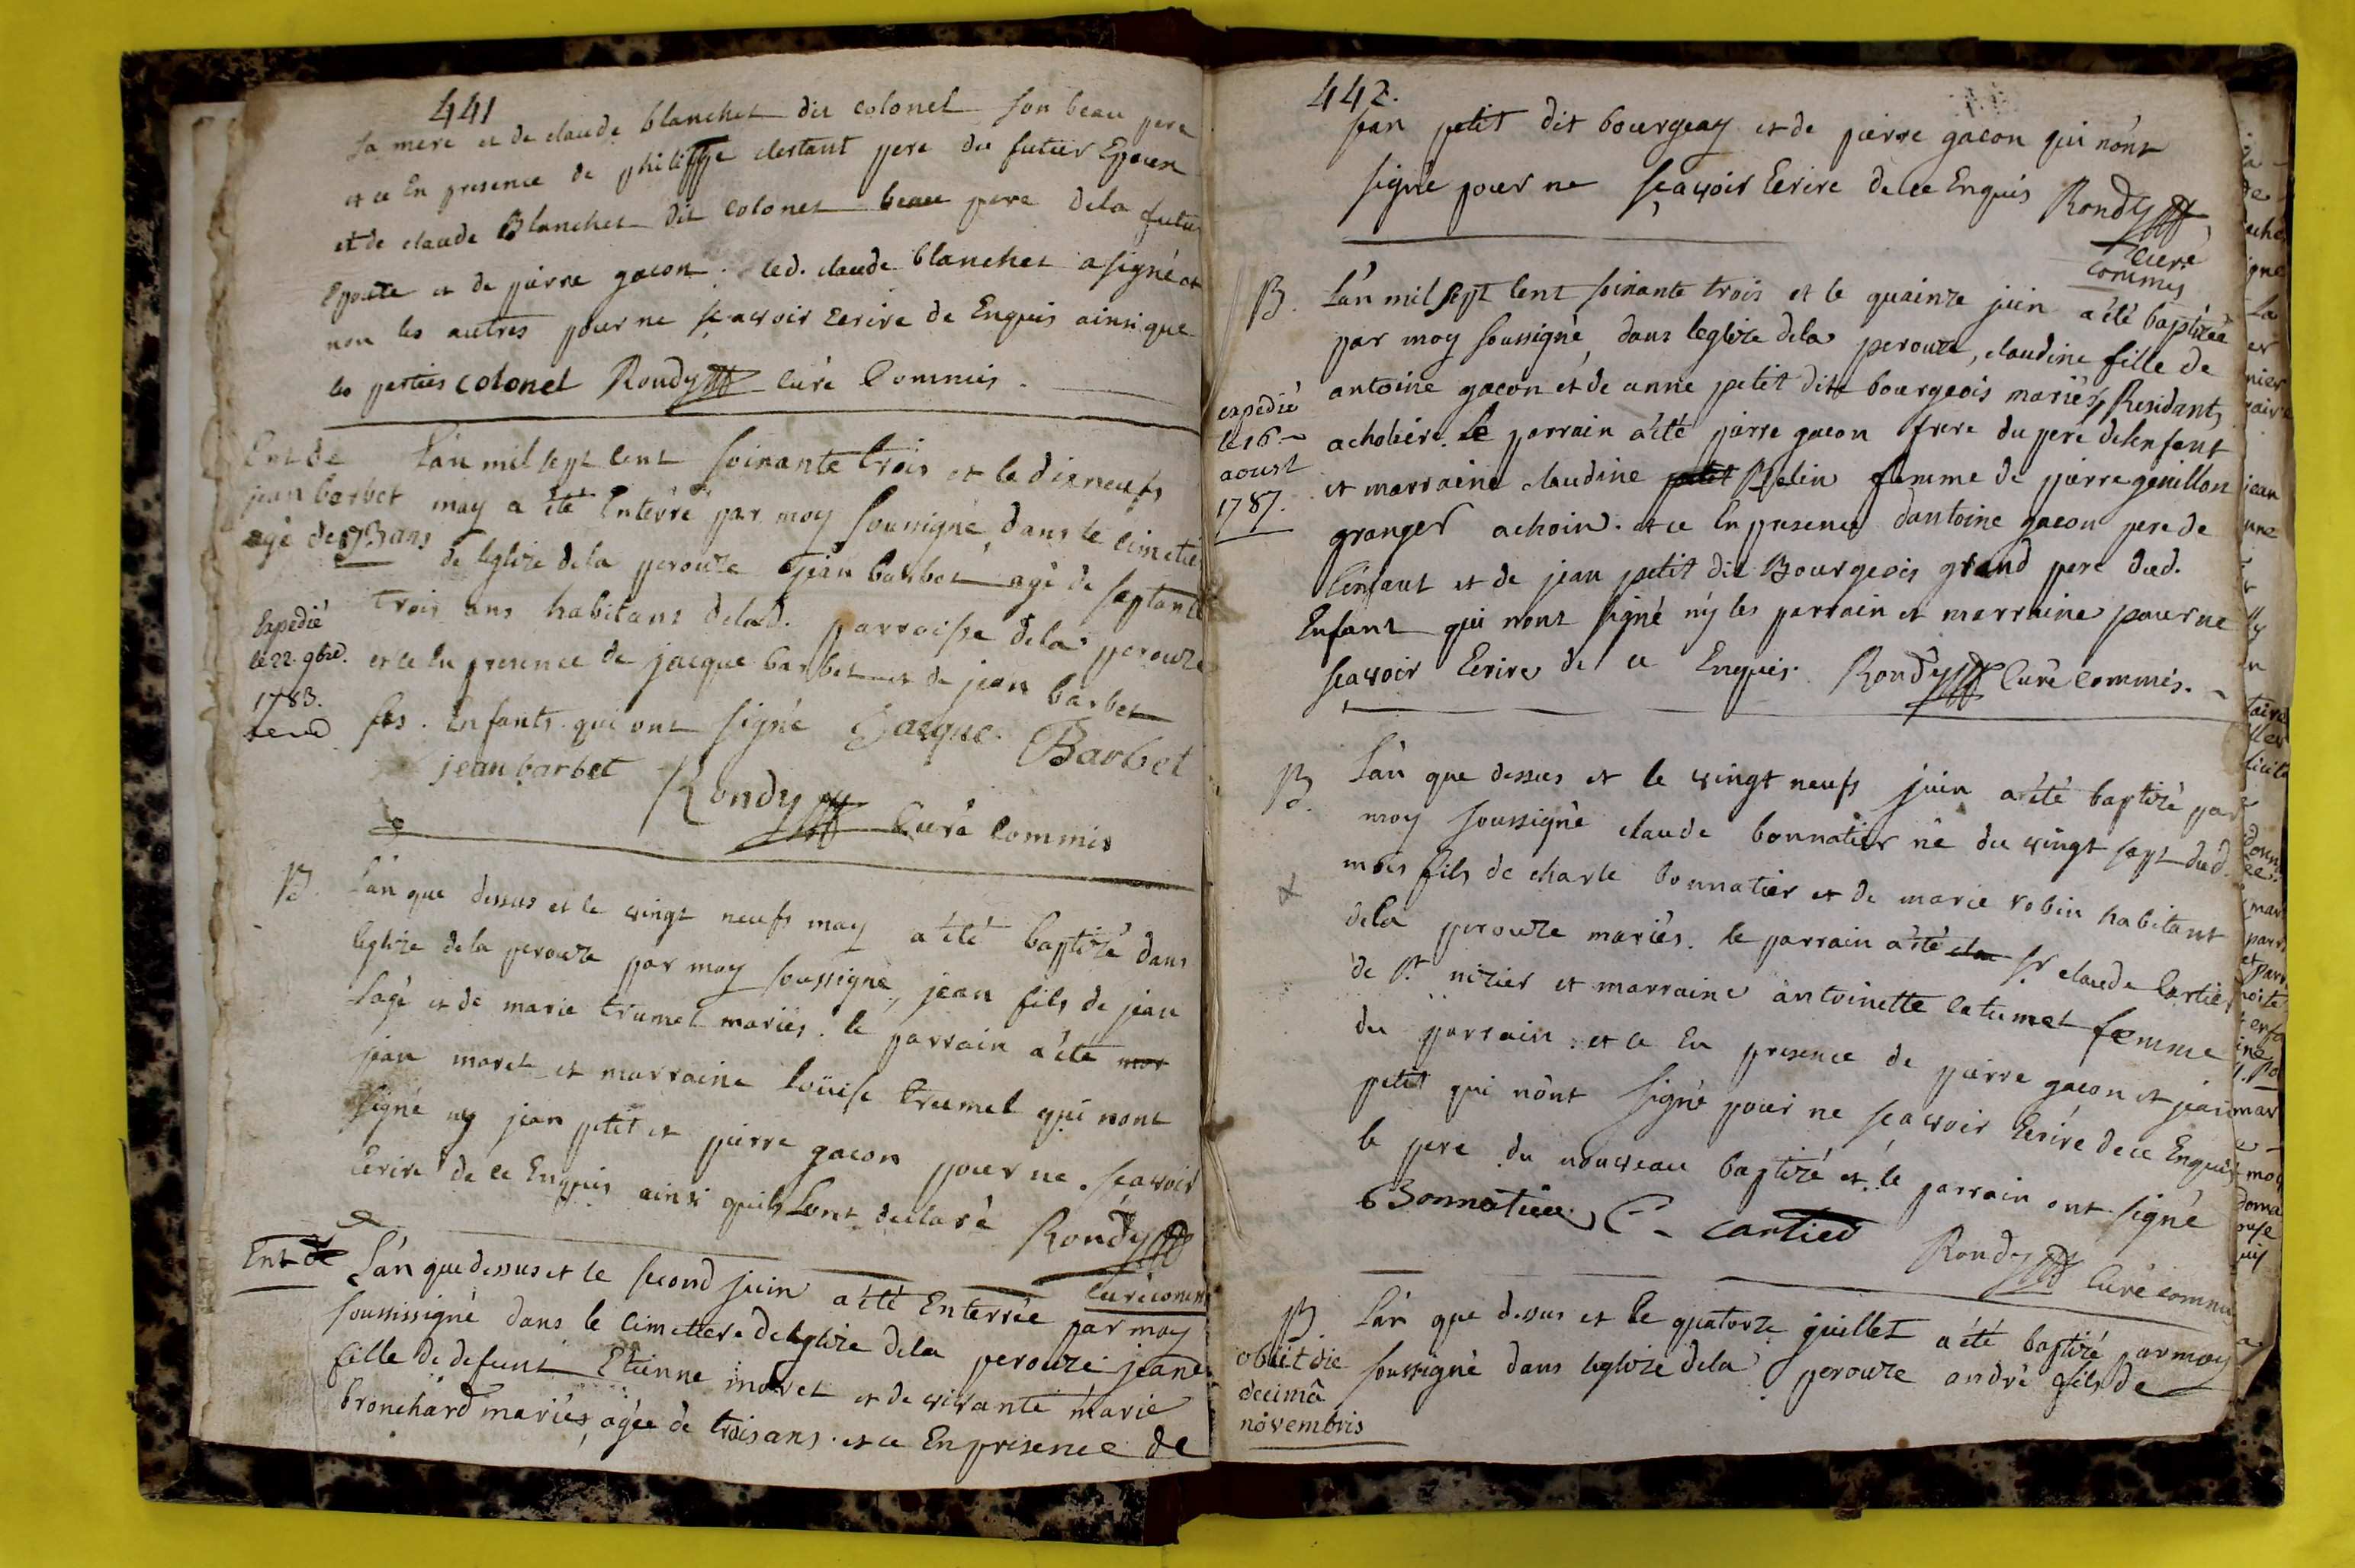 441
Sa mere et de claude blanchet dit colonel son beau pere
et ce En presence de philippe clertant pere du futur Epoux
et de claude Blanchet dit colonel beau pere dela futur
Epouze et de pierre gacon. led. claude blanchet a signé et
non les autres pour ne scavoir Ecrire de Enquis ainsi que
les parties colonel Rondy Curé Commis.
Ent de
jean barbet
agé de 73 ans
L'an mil sept cent soixante trois et le dixneufs
may a été Enterré par moy soussigné, dans le cimetie
de leglize dela perouze jean barbet agé de septante
trois ans habitans delad. parroisse dela perouze
et ce En presence de jacque barbet et de jean barbet
ses Enfants qui ont signé Jacque Barbet
jean barbet
Rondy Curé Commis
Expedié
le 22. 9bre.
1783.
B. L'an que dessus et le vingt neufs may a été baptizé dans
leglize dela perouze par moy soussigné, jean fils de jean
Sagé et de marie trumel mariés. le parrain a été mor
jean moret et marraine loüise trumel qui nont
signé ny jean petit et pierre gacon pour ne scavoir
Ecrire de ce Enquis ainsi quils Lont declaré Rondy
Curé comm
Ent de L'an que dessus et le second juin a été Enterrée par moy
soumissigné dans le cimetiere de leglize dela perouze jeane
fille de defunt Etienne moret et de vivante marie
bronchard mariés, agée de trois ans. et ce En presence de
442.
jean petit dit bourgeay et de pierre gacon qui n'ont
signé pour ne scavoir Ecrire de ce Enquis Rondy
Curé
commis
B. L'an mil sept cent soixante trois et le quainze juin a été baptizée
par moy soussigné, dans leglize dela perouze, claudine fille de
antoine gacon et de anne petit dite bourgeois mariés, Residants
a choliere. Le parrain a été pierre gacon frere du pere delenfant
et marraine claudine petit Belin femme de pierre genillon
granger a choin. et ce En presence dantoine gacon pere de
l'enfant et de jean petit dit Bourgeois grand pere dud.
Enfant qui nont signé ny les parrain et marraine pour ne
scavoir Ecrire de ce Enquis. Rondy Curé commis.
expedié
le 16
aoust
1787.
B. L'an que dessus et le vingt neufs juin a été baptizé par
moy soussigné claude bonnatier né du vingt sept dud.
mois fils de charle bonnatier et de marie robin habitant
dela perouze mariés. le parrain a été sr claude Cartier
de st. nizier et marraine antoinette catumet femme
du parrain. et ce En presence de pierre gacon et jean
petit qui n'ont signé pour ne scavoir Ecrire de ce Enquis
le pere du nouveau baptizé et le parrain ont signé
Bonnatier C. cartier
Rondy Curé commis
B L'an que dessus et le quatorze juillet a été baptizé par moy
soussigné dans leglize dela perouze andré fils de
obiit die
decimâ
novembris